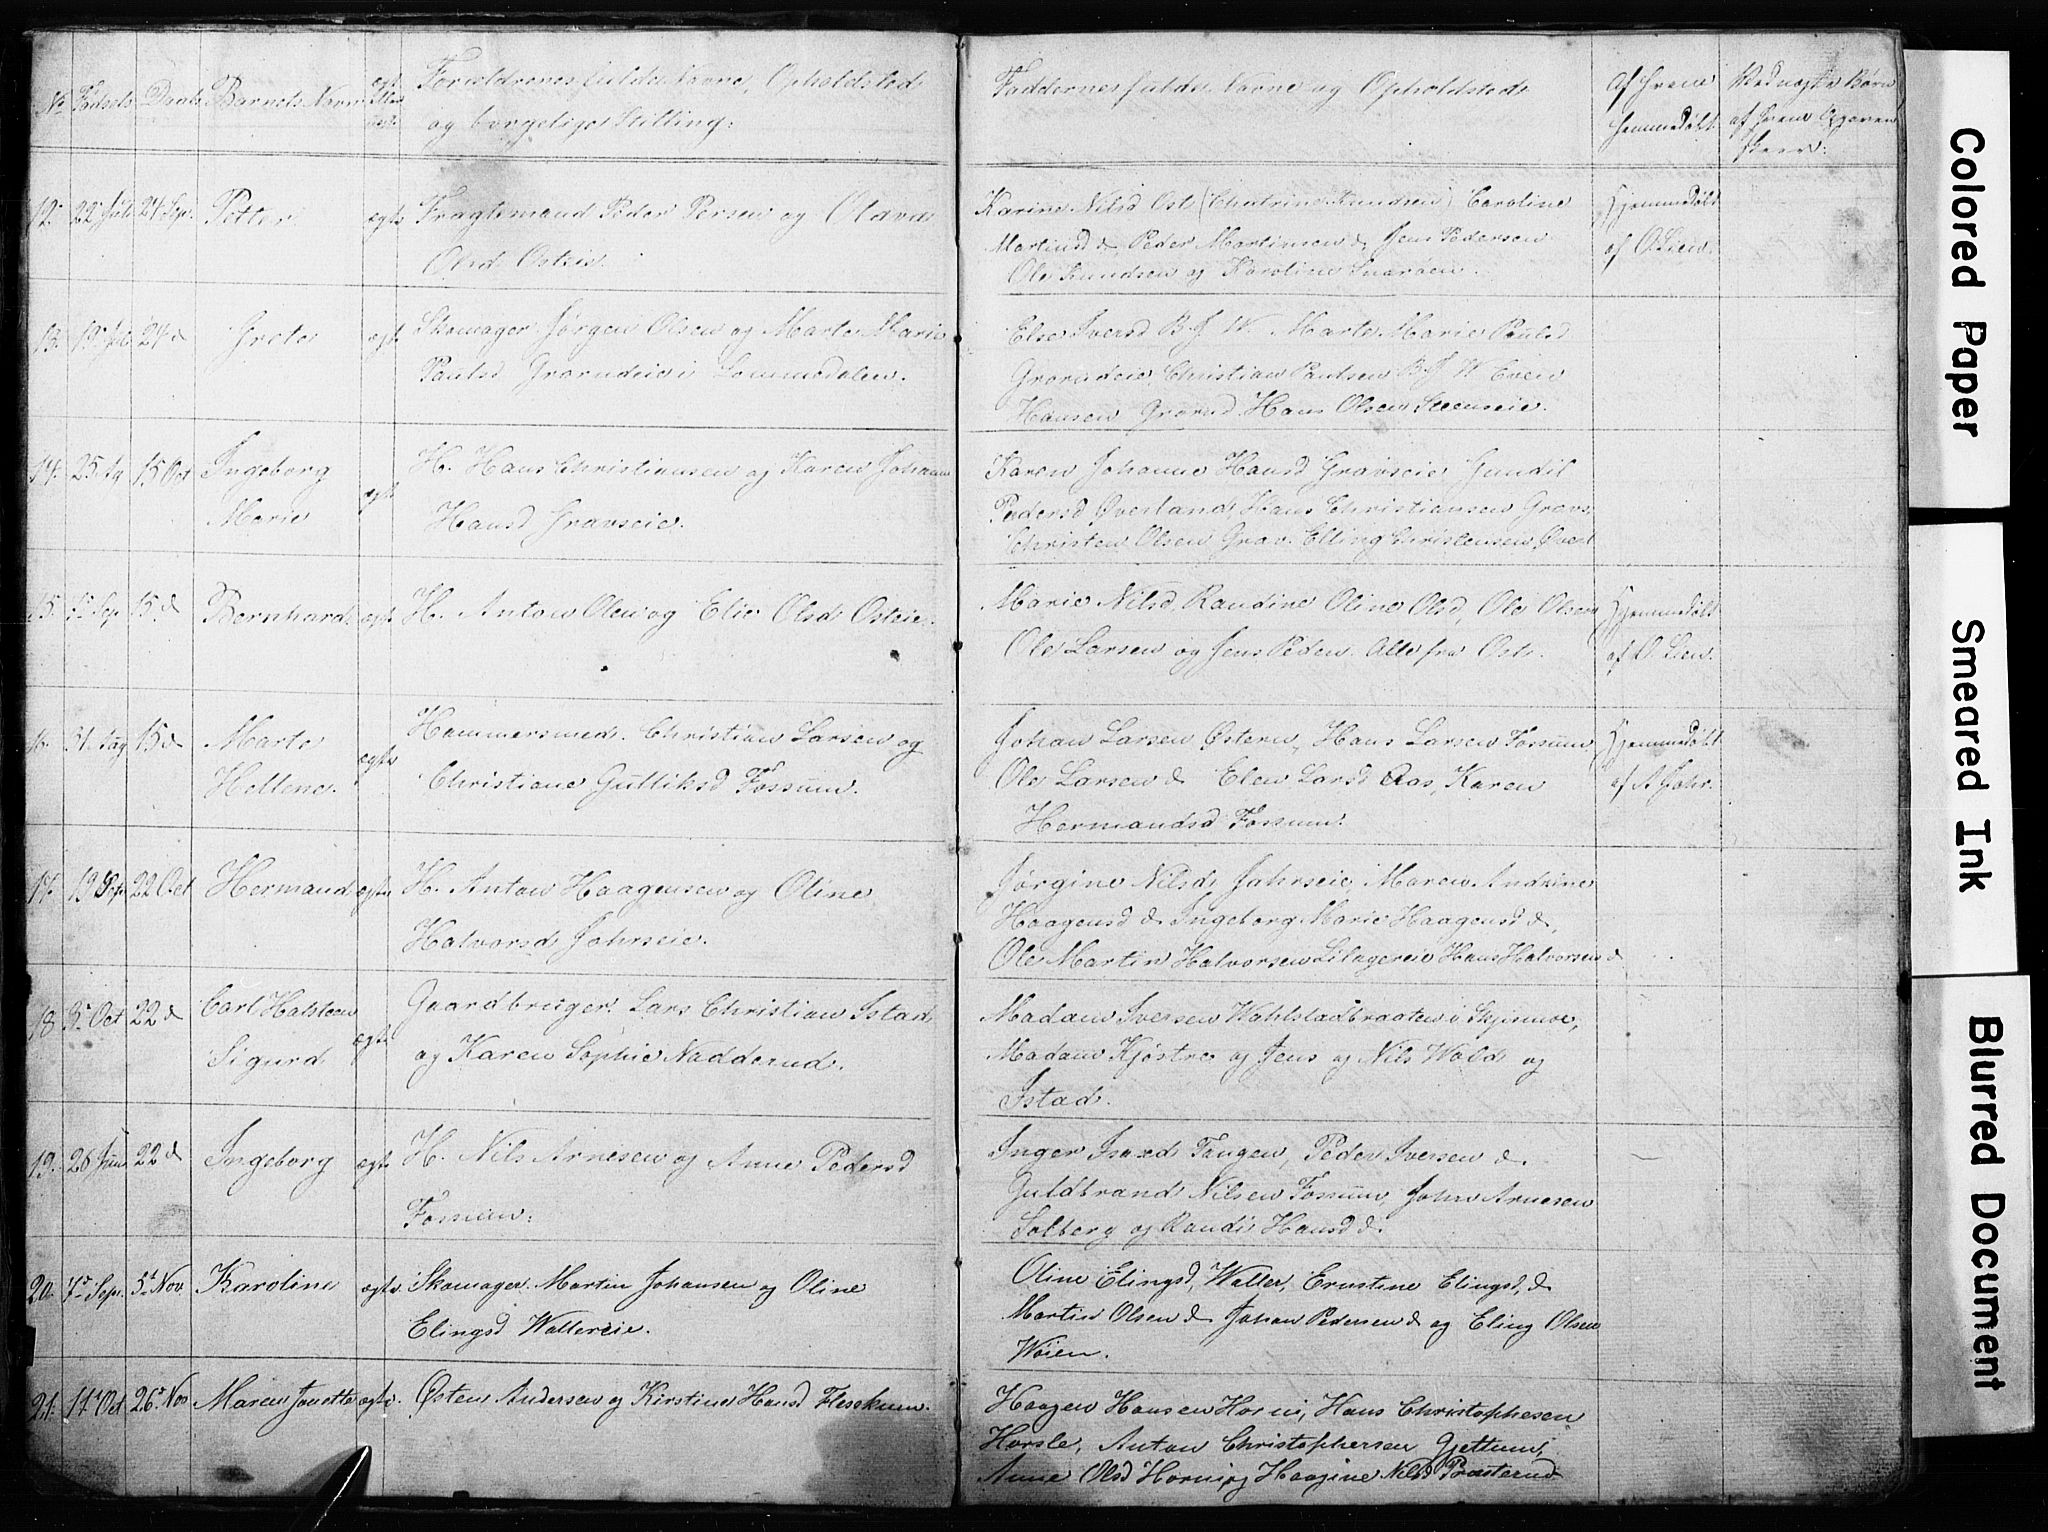 No Fødsels Daabs Barnets Navn ægte Eller Forældrenes fulde Navne, Opholdsted
og borgelige Stilling:
Faddernes fulde Navne og Opholdsted
Af hvem
hjemmedøbt
af hvem
12. 22 Juli 24 Sep. Petter ægte Fragtemand Peder Persen og Olava
Olsd Osteie.
Karine Nilsd Ost (Chatrine Knudsen) Caroline
Martinsd d. Peder Martinsen d. Jens Pedersen
Ole Knudsen og Karoline Snarøen.
Hjemmedøbt
af O. Lien.
13. 19 Juli 24 d Grete ægte Skomager Jørgen Olsen og Marte Marie
Paulsd Grorudeie i Lommedalen.
Else Iversd B J W. Marte Marie Paulsd
Grorudeie, Christian Paulsen B J W Even
Hansen Grorud. Hans Olsen Steenseie.
14. 25 Ag 15 Oct Ingeborg
Marie
ægte H. Hans Christiansen og Karen Johanne
Hansd Gravseie.
Karen Johanne Hansd Gravseie Gundil
Pedersd Øverland, Hans Christiansen Gravs
Christen Olsen Grav. Elling Christensen Øverl
15. Sep 15 d Bernhard ægte H. Anton Olsen og Elie Olsd Osteie.
Marie Nilsd, Randine Oline Olsd, Ole Olsen
Ole Larsen og Jens Peden. Alle fra Ost.
Hjemmedøbt
af O. Lien.
16. 31 Aug 15 d Marte
Hellene.
ægte Hammersmed. Christian Larsen og
Christiane Gulliksd Fossum.
Johan Larsen Østern, Hans Larsen Fossum
Ole Larsen d. Elen Larsd Aas, Karen
Hermandsd Fossum.
Hjemmedøbt
af A Johr.
17. 19 Sep 22 Oct Hermand ægte H. Anton Haagensen og Oline
Halvorsd Jahrseie.
Jørgine Nilsd Jahrseie, Maren Andrine
Haagensd d. Ingeborg Marie Haagensd d.
Ole Martin Halvorsen Lilugereie Hans Halvorsen d
18. 3 Oct 22 d Carl Halsteen
Sigurd
ægte Gaardbruger. Lars Christian Istad
og Karen Sophie Nadderud.
Madam Iversen Wahlstadbraaten i
Madam Kjøstre og Jens og Nils Wold og
Istad.
19. 26 Juni 22 d Ingeborg ægte H. Nils Arnesen og Anne Pedersd
Fossum.
Inger Isaxd Tangen, Peder Iversen d.
Guldbrand Nilsen Fossum, John Arnesen
Solberg og Randi Hansd d.
20. 7d Sep. 5t Nov Karoline ægte. Skomager. Martin Johansen og Oline
Elingsd Wallereie.
Oline Elingsd, Waller, Ernstine Elingsd, d
Martin Olsen d. Johan Pedersen d og Eling Olsen
Wøien.
21. 11 Oct 26 Nov Maren Janette ægte. Østen Andersen og Kirstine Hansd Flesskum.
Haagen Hansen Horni, Hans Christophesen
Horsle, Anton Christophersen Gjettum,
Anne Olsd Horni og Haagine Nilsd Præsterud
Colored Paper
Smeared Ink
Blurred Document